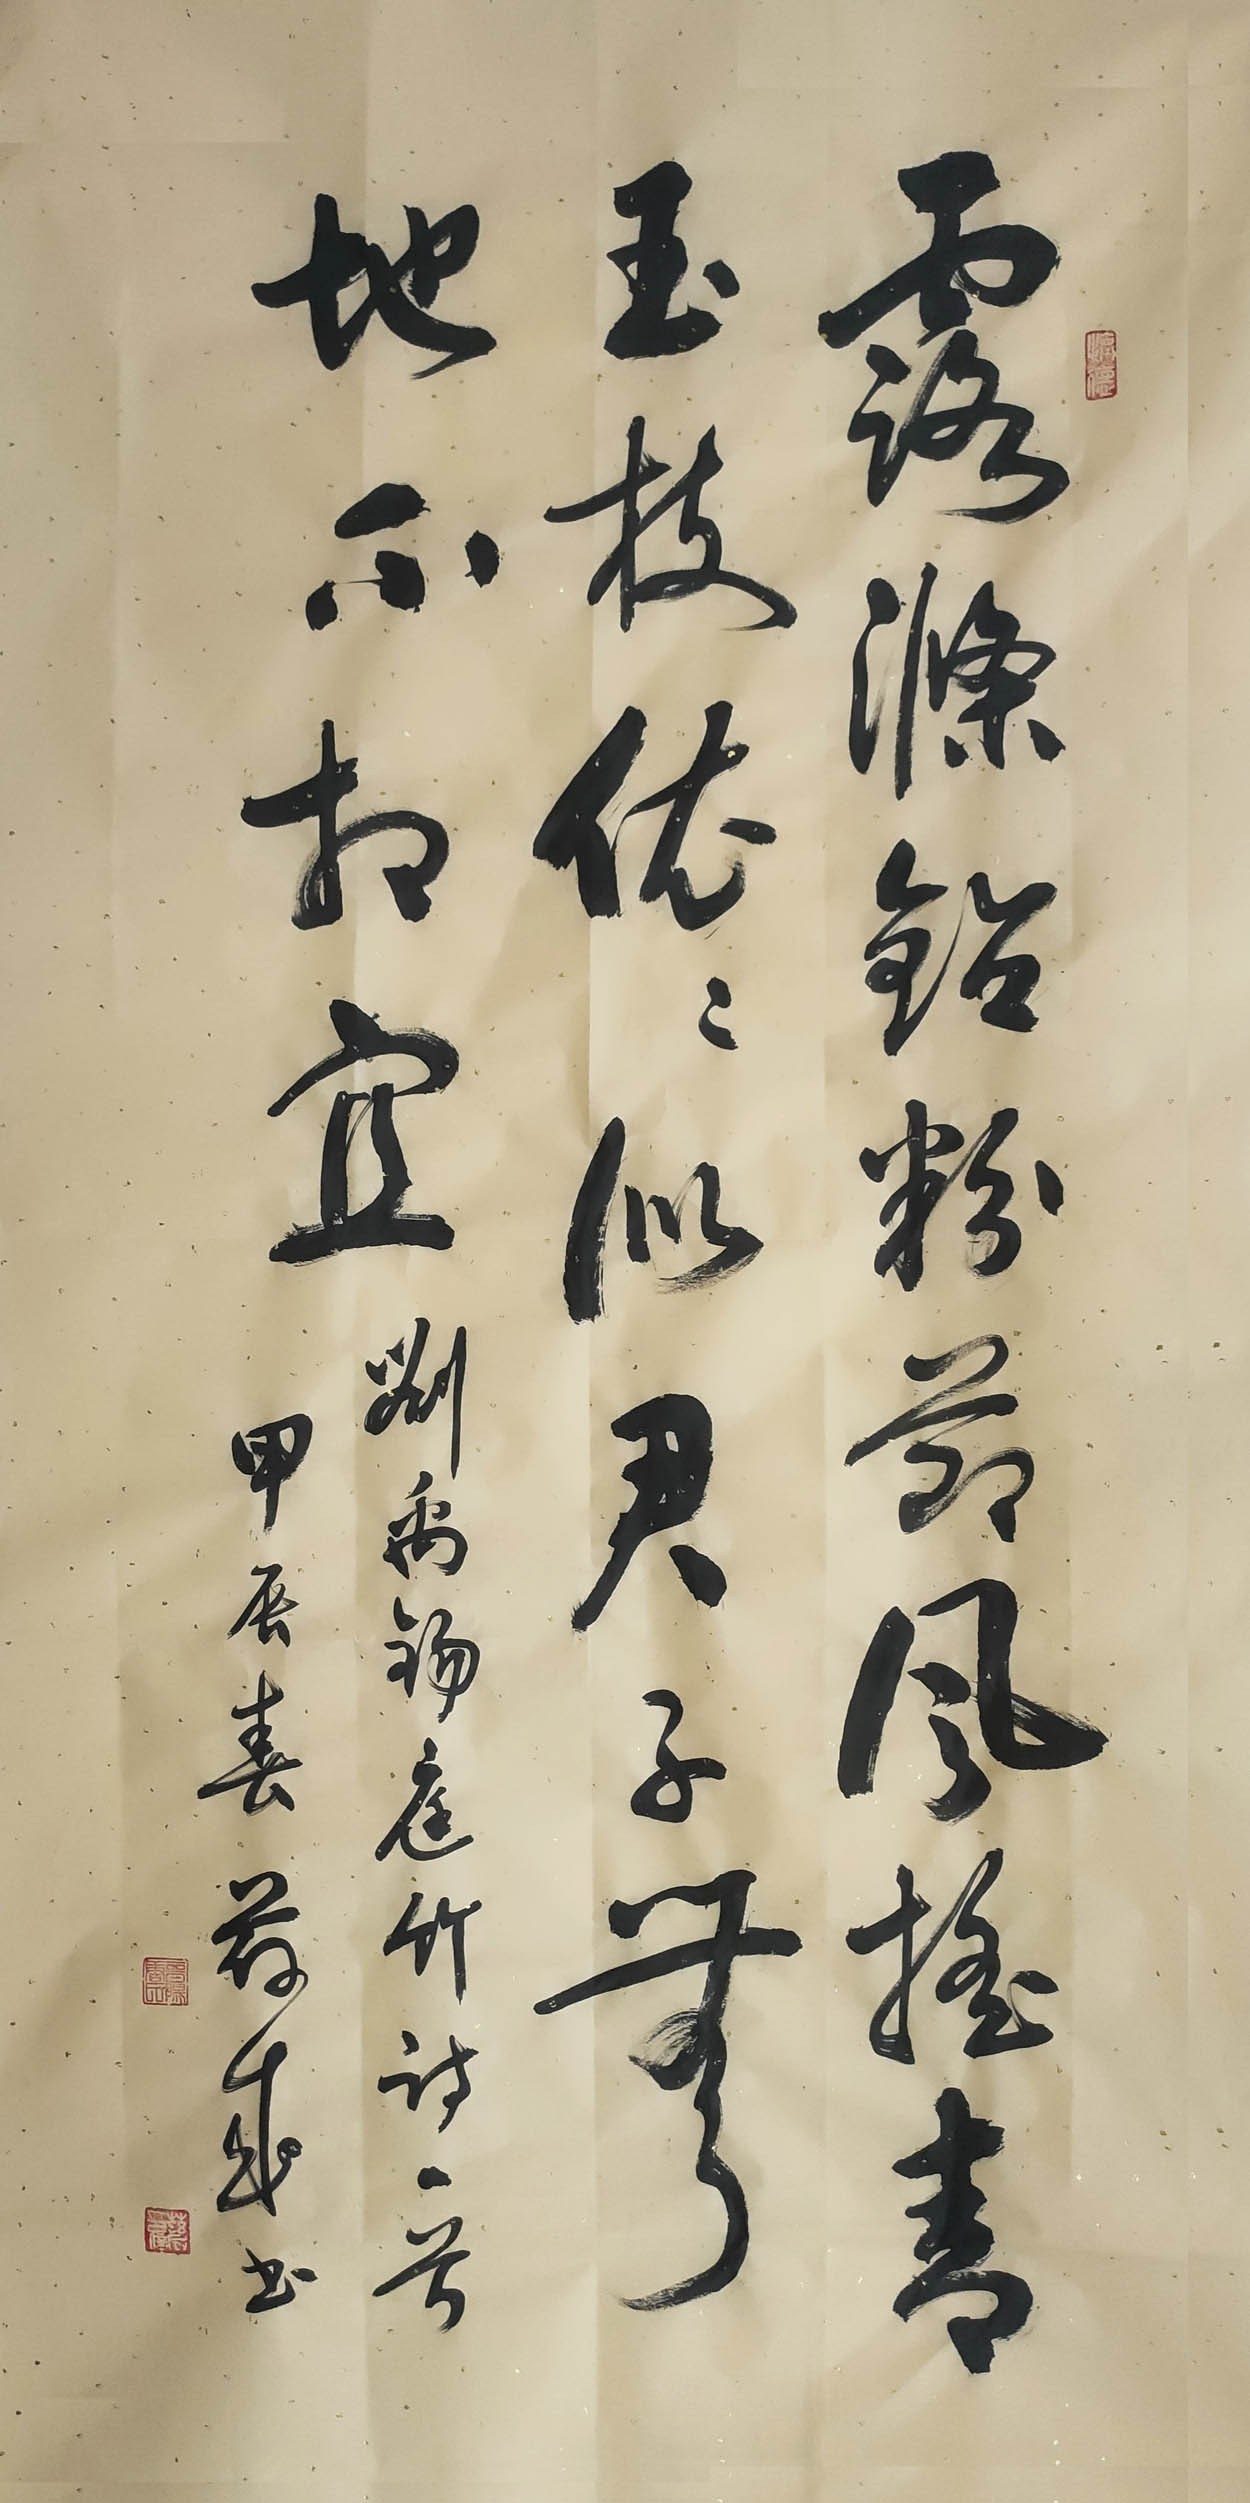 露滌鉛粉節風搖青
玉枝依〻似君子無
地不相宜
劉禹錫庭竹詩一首
甲辰春荷成书